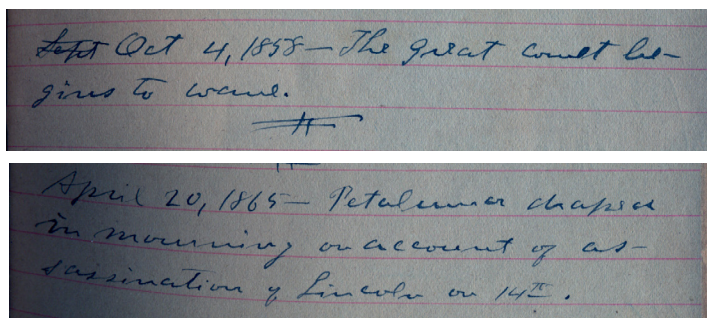 Sept Oct 4, 1858 — The great comet be-
gins to wane.
April 20, 1865 — Petaluma draped
in mourning on account of as-
sassination of Lincoln on 14th.